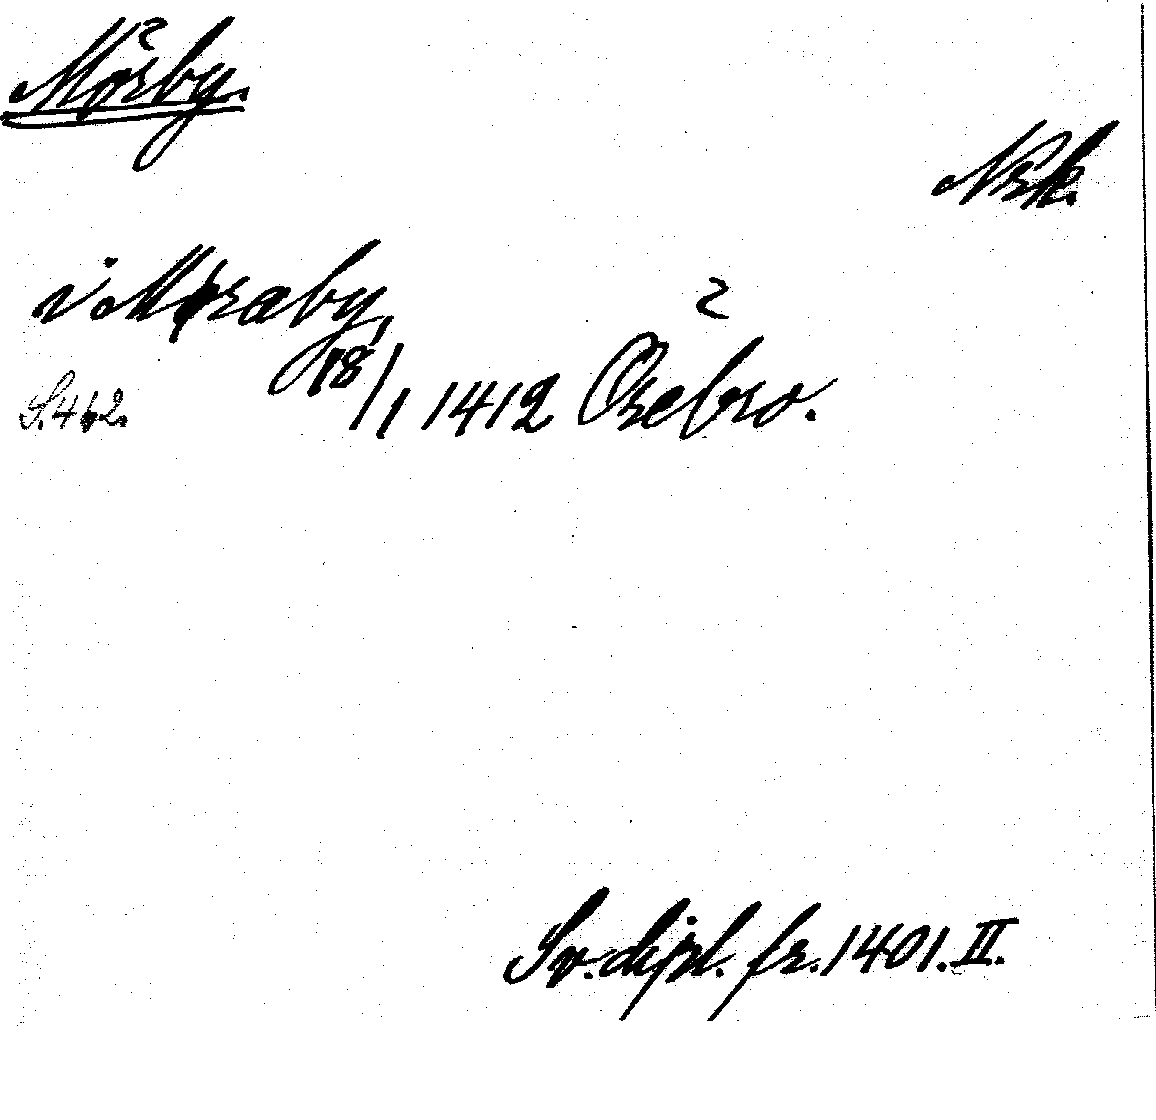 Mörby.
Nrk.
i Møræby,
18/1 1412 Örebro.
S. 462.
Sv. dipl. fr. 1401. II.